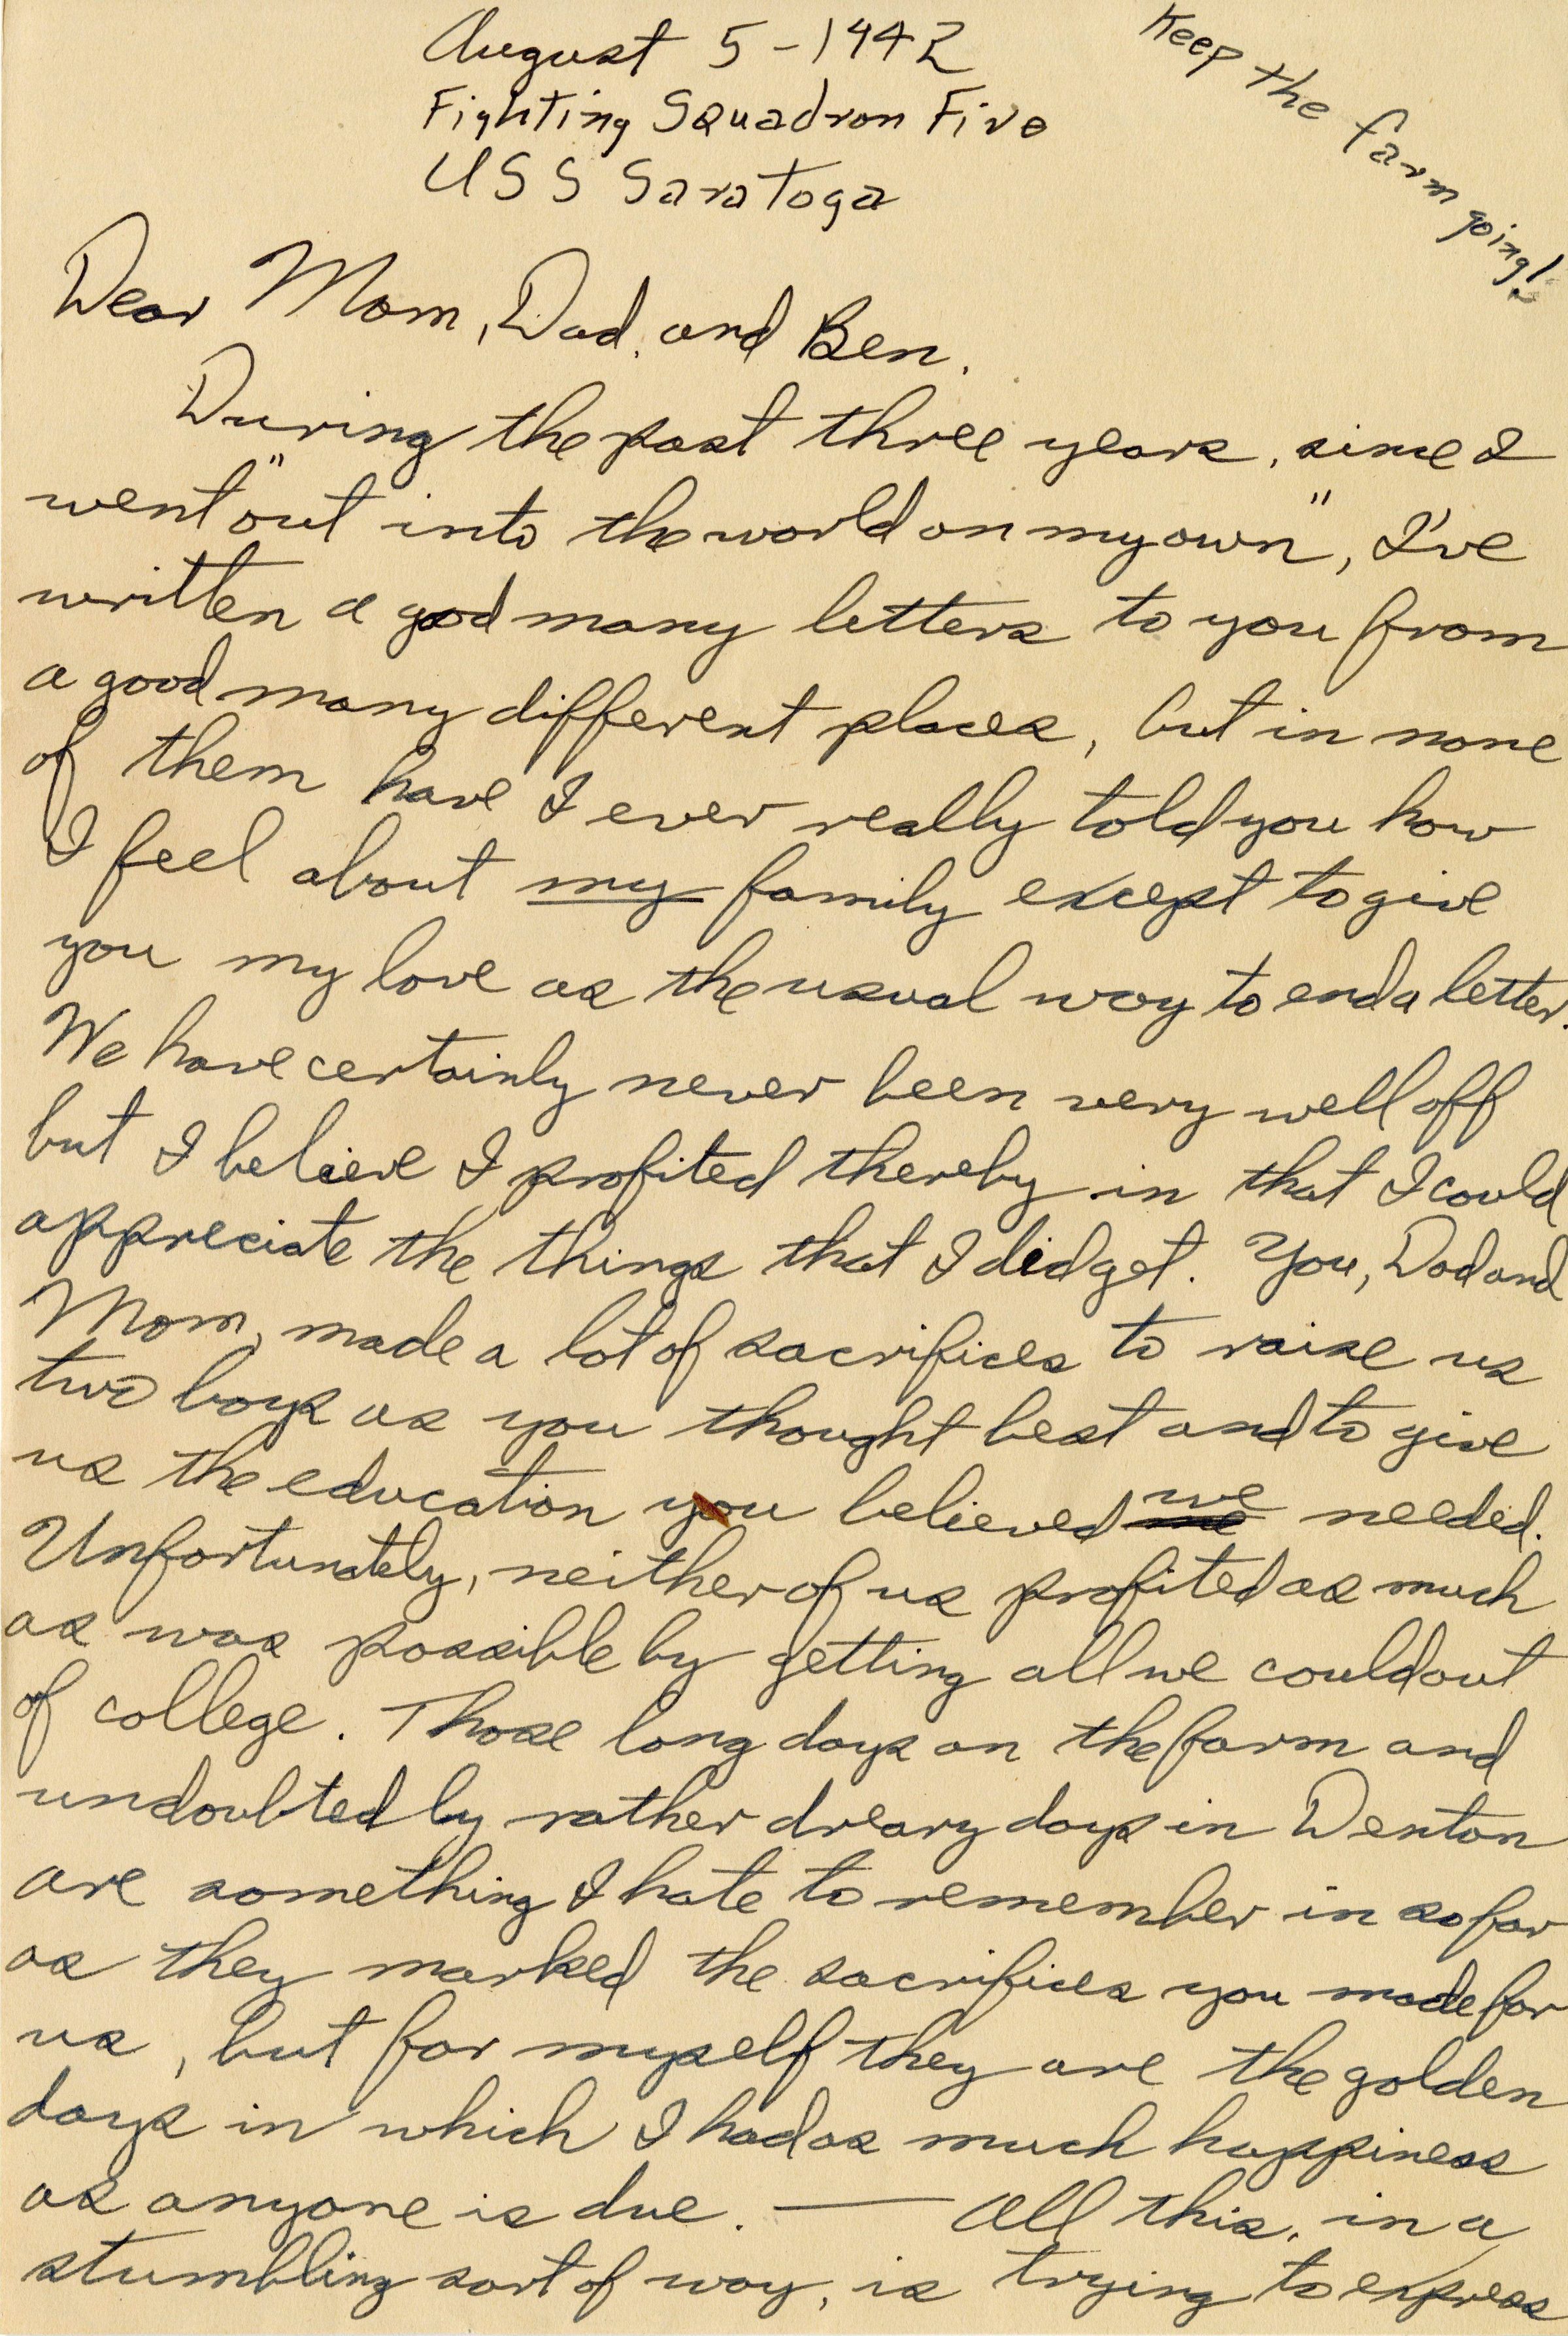 August 5-1942
Fighting Squadron Five
USS Saratoga
Keep the farm going!
Dear Mom, Dad, and Ben,
During the past three years, since I
went "out into the world on my own", I've
written a good many letters to you from
a good many different places, but in none
of them have I ever really told you how
I feel about my family except to give
you my love as the usual way to end a letter.
We have certainly never been very well off
but I believe I profited thereby in that I could
appreciate the things that I did get. You, Dad and
Mom, made a lot of sacrifices to raise us
two boys as you thought best and to give
us the education you believed we needed.
Unfortunately, neither of us profited as much
as was possible by getting all we could out
of college. Those long days on the farm and
undoubtedly rather dreary days in Denton
are something I hate to remember in so far
as they marked the sacrifices you made for
us, but for myself they are the golden
days in which I had as much happiness
as anyone is due. — All this, in a
stumbling sort of way, is trying to express